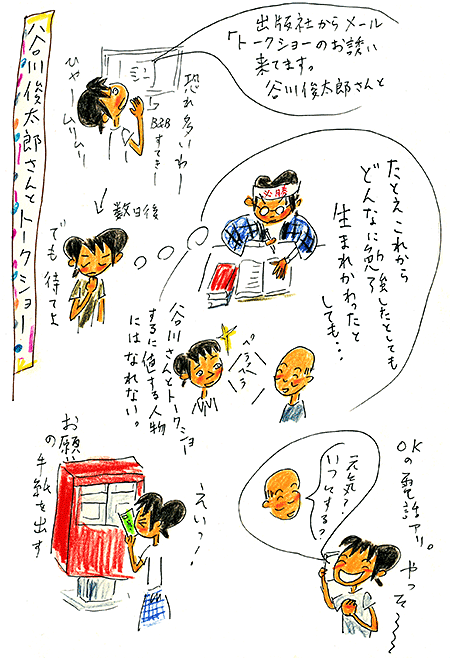 谷川俊太郎さんとトークショー
出版社からメール
「トークショーのお誘い
来てます。
谷川俊太郎さんと
恐れ多いわー
B&B
すてきー
ひゃームリムリー
数日後
でも待てよ
たとえこれから
どんなに勉強したとしても
生まれかわったと
しても・・・
必勝
谷川さんとトークショー
するに値する人物
にはなれない。
ぺらぺら
お願い
の手紙を出す
えいっ!
OKの電話アリ。
元気?
いつにする?
やっそ〜